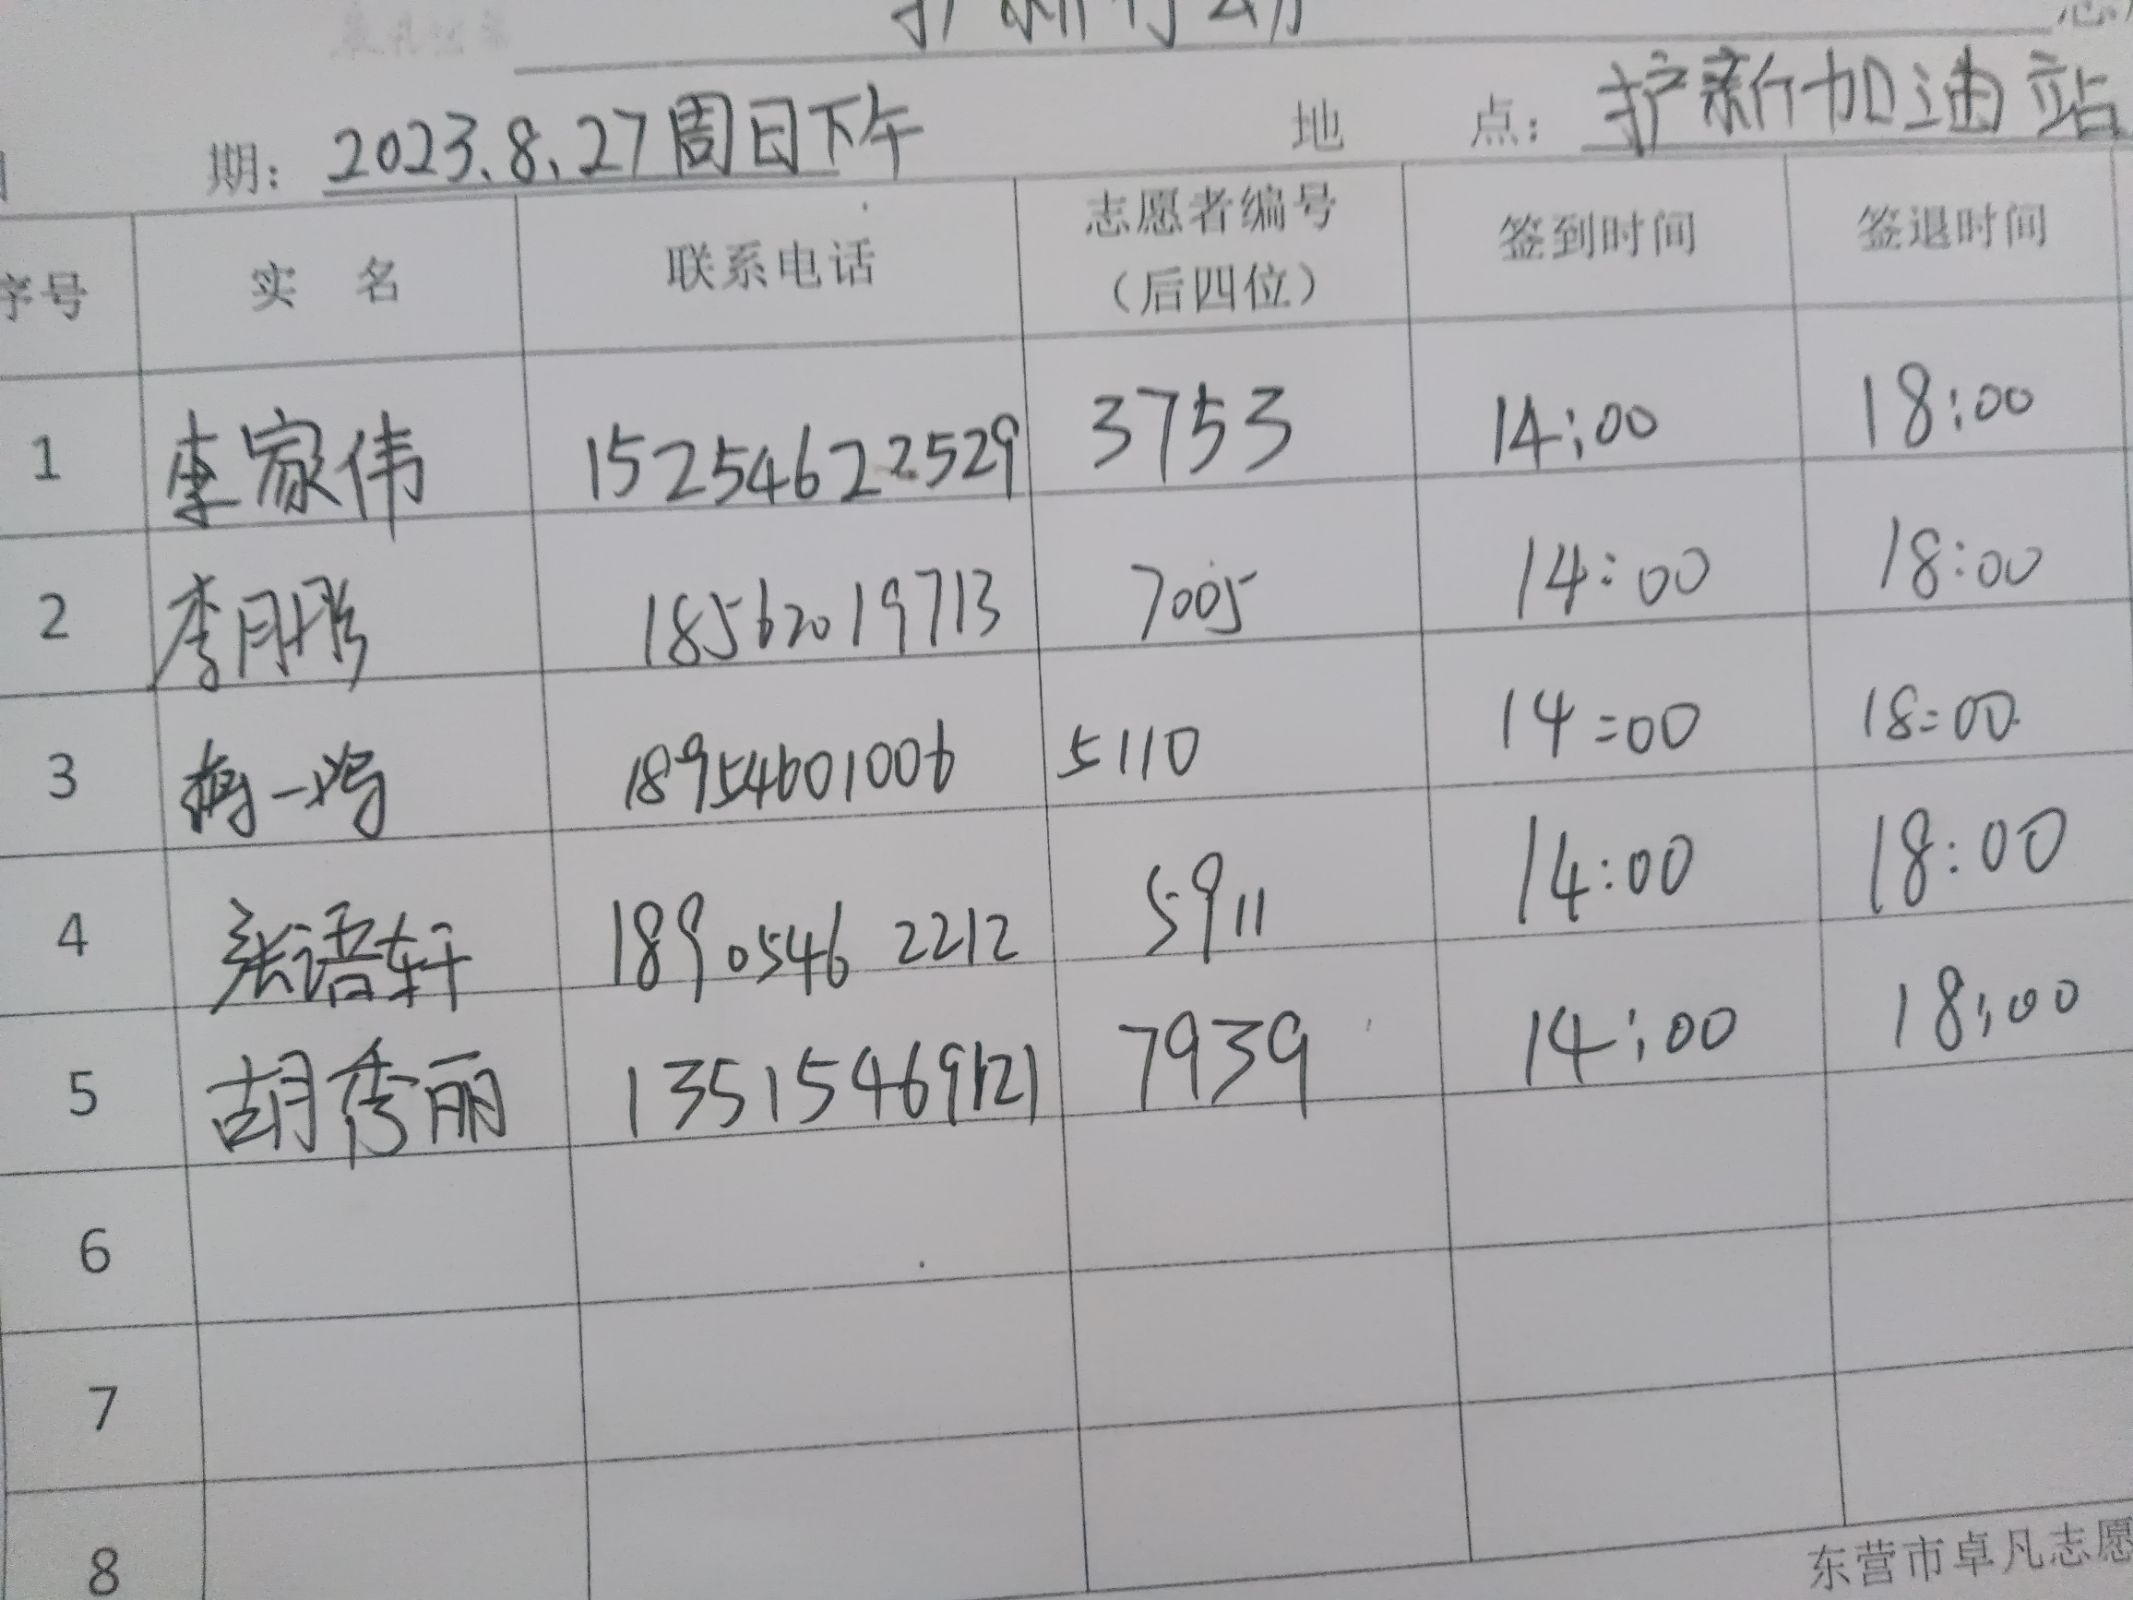 护新行动
期: 2023.8.27周日下午 地 点: 护新加油站
序号 实 名 联系电话 志愿者编号（后四位） 签到时间 签退时间
1 李家伟 15254622529 3753 14:00 18:00
2 李月彤 18562019713 7005 14:00 18:00
3 一鸣 18954601006 5110 14:00 18:00
4 张语轩 18905462212 5911 14:00 18:00
5 胡秀丽 13515469121 7939 14:00 18:00
6
7
8
东营市卓凡志愿